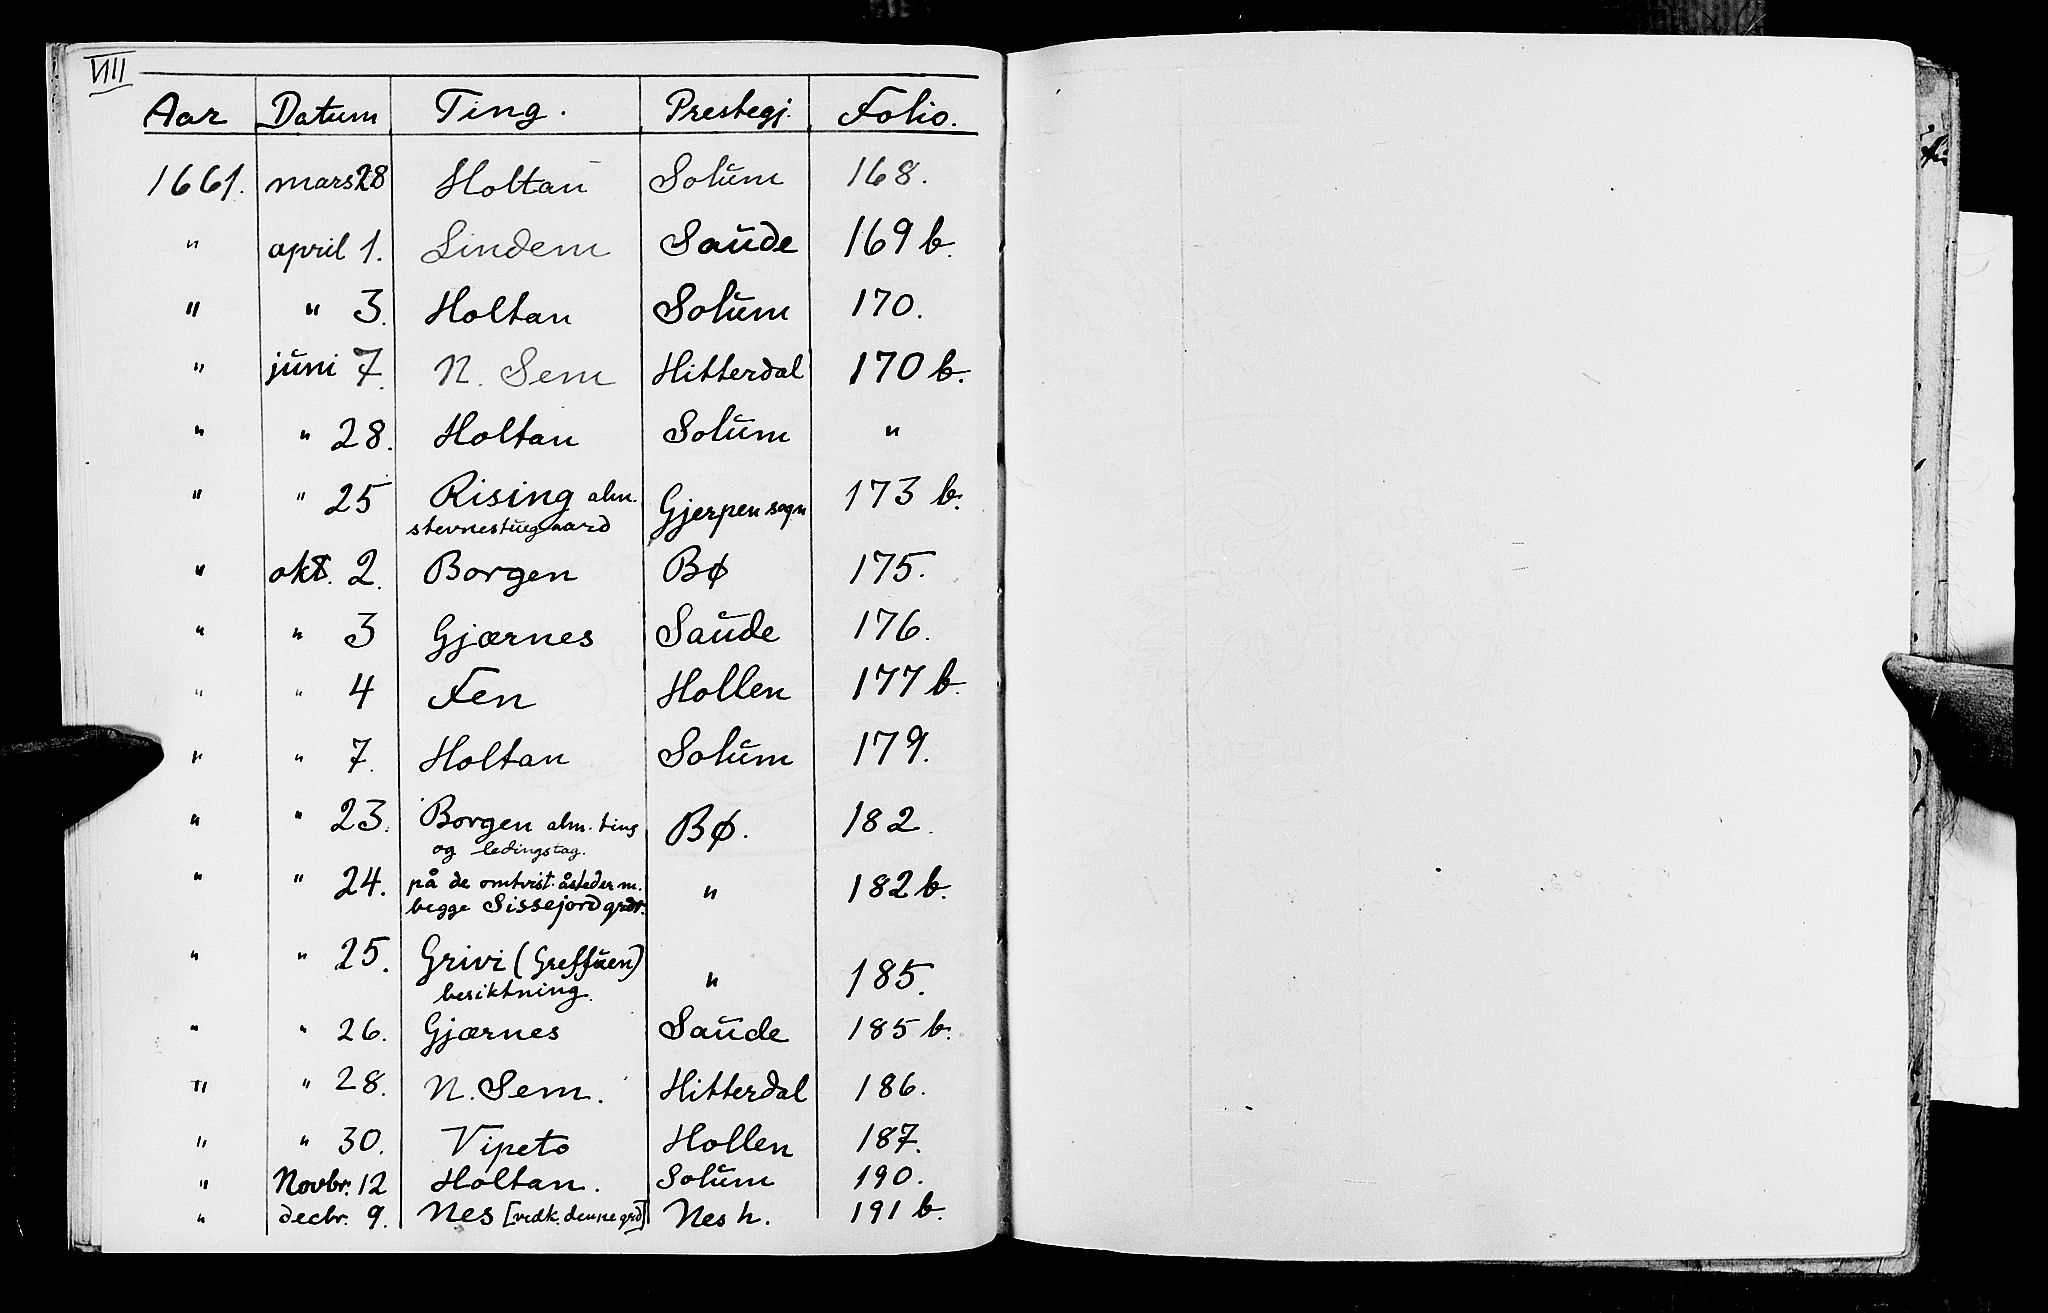 VIII
Aar Datum Ting. Prestegj. Folio.
1661. mars 28 Holtan Solum 168.
" april 1. Lindem Saude 169 b.
" " 3. Holtan Solum 170.
" juni 7. N. Sem Hitterdal 170 b.
" " 28. Holtan Solum "
" " 25 Rising alm. Gjerpen sogn 173 b.
stevnestuegaard
" okt. 2. Borgen Bø 175.
" " 3 Gjærnes Saude 176.
" " 4 Fen Hollen 177 b.
" " 7. Holtan Solum 179.
" " 23. Borgen alm. ting Bø. 182.
og ledingstag.
" " 24. på de omtvist. åsteder m. " 182 b.
begge Sissejord grdr.
" " 25. Grivi (Greffuen) " 185.
besiktning.
" " 26. Gjærnes Saude 185 b.
" " 28. N. Sem. Hitterdal 186.
" " 30. Vipeto Hollen 187.
" Novbr. 12 Holtan. Solum 190.
" decbr. 9. Nes [vedk. denne grd] Nes h. 191 b.